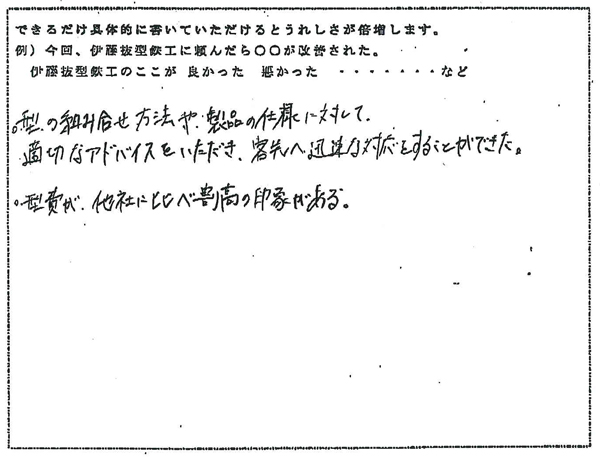 できるだけ具体的に書いていただけるとうれしさが倍増します。
例）今回、伊藤抜型鉄工に頼んだら〇〇が改善された。
伊藤抜型鉄工のここが 良かった 悪かった ・・・・・・・など
。型の組み合せ方法や、製品の仕様に対して、
適切なアドバイスをいただき、客先へ迅速な対応をすることができた。
。型費が、他社に比べ割高の印象がある。